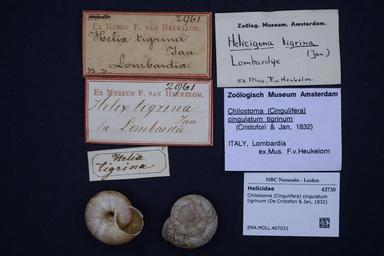 2961
EX MUSEO F. VAN HEUKELOM.
Helix tigrina
Jan
Lombardia
2961
EX MUSEUM F. VAN HEUKELOM.
Helix tigrina
Jan
La Lombardia
Helix
tigrina
Zoölog. Museum. Amsterdam.
Helicigona tigrina
(Jan)
Lombardije
ex Mus. F.v. Heukelom.
Zoölogisch Museum Amsterdam
Chilostoma (Cingulifera)
cingulatum tigrinum
(Cristofori & Jan, 1832)
ITALY, Lombardia
ex.Mus. F.v.Heukelom
NBC Naturalis - Leiden
Helicidae 43730
Chilostoma (Cingulifera) cingulatum
tigrinum (De Cristofori & Jan, 1832)
ZMA.MOLL.407021